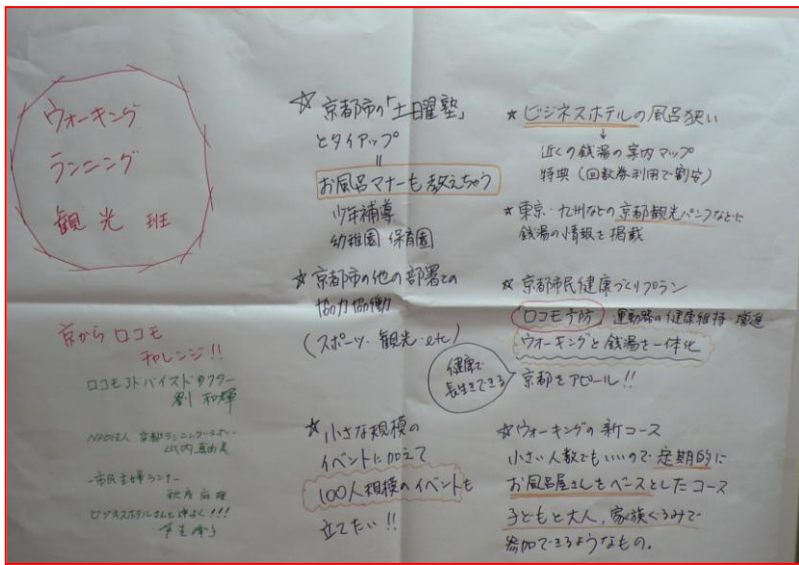 ウォーキング
ランニング
観光班
京からロコモ
チャレンジ!!
ロコモアドバイスドクター
劉 和輝
NPO法人 京都ランニング
一市民主婦ランナー
ビジネスホテルさんと仲よく!!!
☆京都市の「土曜塾」
とタイアップ
=
お風呂マナーも教えちゃう
少年補導
幼稚園 保育園
☆京都市の他の部署との
協力協働
(スポーツ・観光・etc)
☆小さな規模の
イベントに加えて
100人規模のイベントも
立てたい!!
☆ビジネスホテルの風呂狭い
↓
近くの銭湯の案内マップ
特典(回数券利用で割安)
☆東京・九州などの京都観光パンフなどに
銭湯の情報を掲載
☆京都市民健康づくりプラン
ロコモ予防 運動器の健康維持・増進
ウォーキングと銭湯を一体化
健康で
長生きできる
京都をアピール!!
☆ウォーキングの新コース
小さい人数でもいいので定期的に
お風呂屋さんをベースとしたコース
子どもと大人、家族ぐるみで
参加できるようなもの。